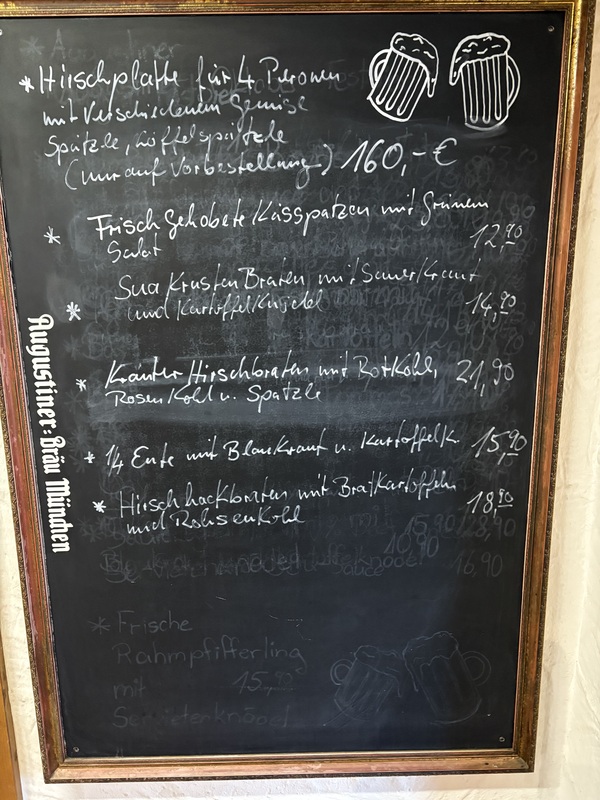 * Hirschplatte für 4 Personen
mit Verschiedenem Gemüse
Spätzle, Löffelspätzle
(nur auf Vorbestellung) 160,-€
* Frisch gehobete Kässpatzen mit Grünem
Salat 12,90
Sua Krusten Braten mit Sauerkraut
* und Kartoffelknödel 14,90
* Kräuter Hirschbraten mit Rotkohl, 21,90
Rosenkohl u. Spätzle
* 1/4 Ente mit Blaukraut u. Kartoffelk. 15,90
* Hirschhackbraten mit Bratkartoffeln
und Rohsenkohl 18,90
Augustiner-Bräu München
* Frische
Rahmpfifferling
mit 15,90
Servieterknödel